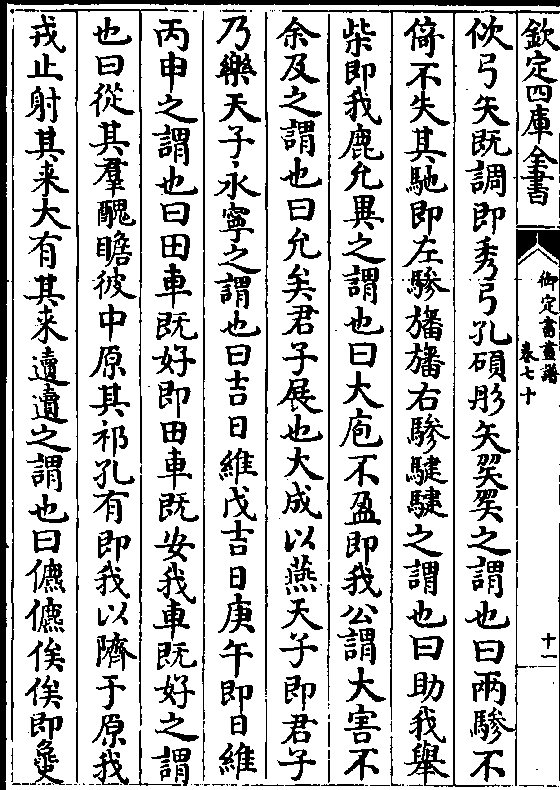 欽定四庫全書
御定書畫譜
卷七十
十一
佽弓矢既調即秀弓孔碩彤矢㚇㚇之謂也曰兩驂不
倚不失其馳即左驂旛旛右驂騝騝之謂也曰助我舉
柴即我鹿允異之謂也曰大庖不盈即我公謂大害不
余及之謂也曰允矣君子展也大成以燕天子即君子
乃樂天子永寧之謂也曰吉日維戊吉日庚午即日維
丙申之謂也曰田車既好即田車既安我車既好之謂
也曰從其羣醜瞻彼中原其祁孔有即我以隮于原我
戎止射其来大有其来䢱䢱之謂也曰儦儦俟俟即